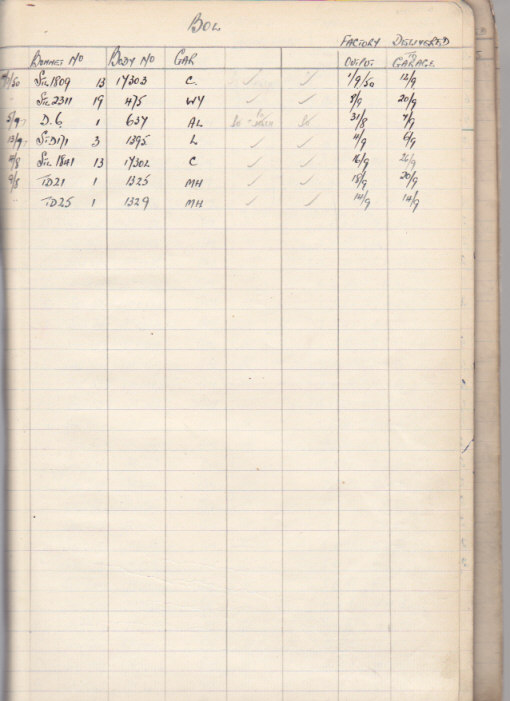 BOL
FACTORY DELIVERED
BONNET NO BODY NO GAR OUTPUT TO GARAGE
STL 1809 13 17303 C. ✓ ✓ 1/9/50 12/9
STL 2311 19 475 WY ✓ ✓ 8/9 20/9
5/9 D.6. 1 637 AL 31/8 7/9
13/9 STD171 3 1395 L ✓ ✓ 4/9 6/9
STL 1841 13 17302 C ✓ ✓ 16/9 26/9
9/8 TD21 1 1325 MH ✓ ✓ 18/9 20/9
TD25 1 1329 MH ✓ ✓ 14/9 14/9